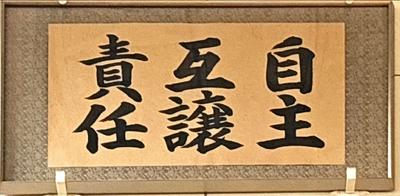 自主
互譲
責任